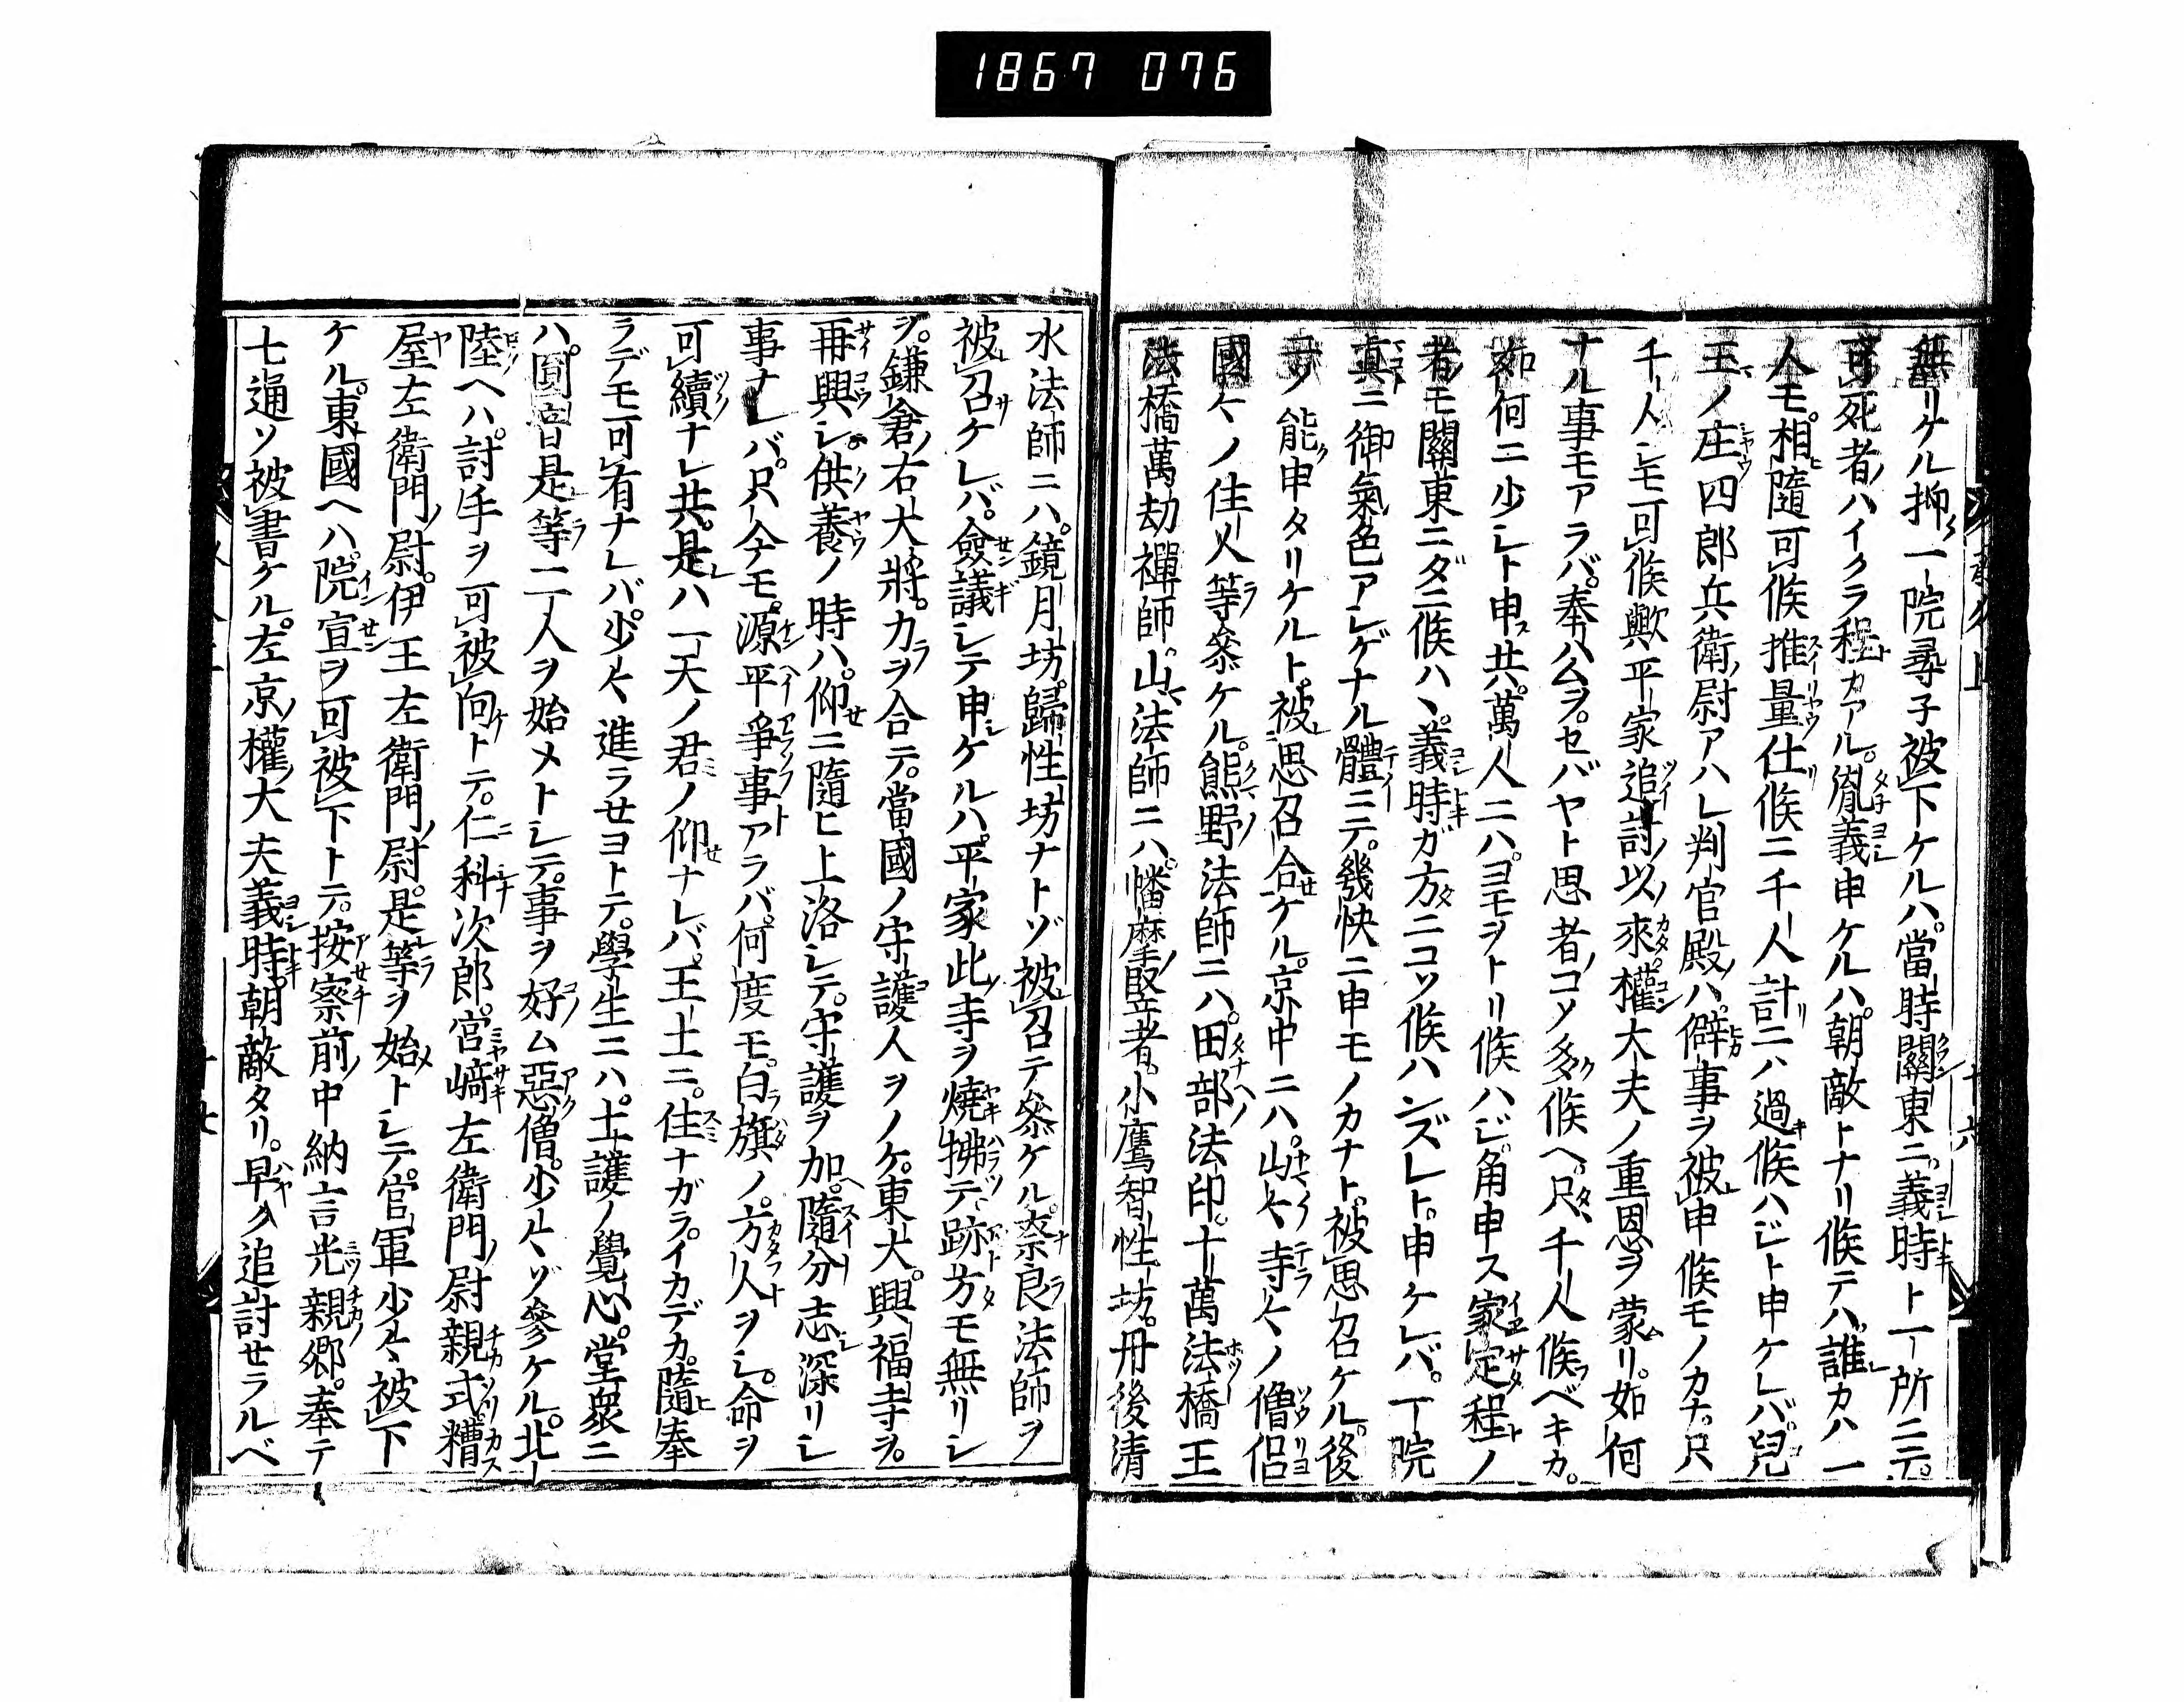 1867 076
無リケル抑一院尋子被下ケルハ。當時關東ニ。義時ト一所ニテ。
可死者ハイクラ程カアル。胤義申ケルハ。朝敵トナリ候テハ。誰カハ一
人モ。相隨可候推量仕候ニ千人計ニハ過候ハジト申ケレバ。兒
玉ノ庄四郎兵衛尉アハレ判官殿ハ。僻事ヲ被申候モノカナ。只
千人シモ可候歟平家追討以來權大夫ノ重恩ヲ蒙リ。如何
ナル事モアラバ。奉ハムヲ。セバヤト思者コソ多候ヘ。只千人候ベキカ。
如何ニ少シト申共。萬人ニハ。ヨモヲトリ候ハジ。角申ス家定程ノ
者モ關東ニダニ候ハヽ。義時ガ方ニコソ候ハンズレト。申ケレバ。一院
真ニ御氣色アレゲナル體ニテ。幾快ニ申モノカナト。被思召ケル。後
ノ能申タリケルト。被思召合ケル。京中ニハ。山々寺々ノ僧侶
國々ノ住人等參ケル。熊野法師ニハ。田部法印。十萬法橋王
法橋萬劫禪師。山法師ニハ。幡摩竪者。小鷹智性坊。丹後清
水法師ニハ。鏡月坊。歸性坊ナトゾ被召テ參ケル。奈良法師ヲ
被召ケレバ。僉議シテ申ケルハ。平家此寺ヲ燒拂テ跡方モ無リシ
ヲ。鎌倉右大將。力ヲ合テ。當國ノ守護人ヲノケ。東大。興福寺ヲ。
再興シ。供養ノ時ハ。仰ニ隨ヒ上洛シテ。守護ヲ加。隨分志深リシ
事ナレバ。只今モ。源平爭事アラバ。何度モ。白旗ノ方人ヲシ。命ヲ
可續ナレ共。是ハ一天ノ君ノ仰ナレバ。王土ニ。住ナガラ。イカデカ。隨奉
ラデモ可有ナレバ。少々進ラセヨトテ。學生ニハ。土護ノ覺心。堂衆ニ
ハ。圓音是等二人ヲ始メトシテ。事ヲ好ム惡僧。少々ゾ參ケル。北
陸ヘハ。討手ヲ可被向トテ。仁科次郎。宮﨑左衛門尉親式。糟
屋左衛門尉。伊王左衛門尉。是等ヲ始トシテ。官軍少々被下
ケル。東國ヘハ。院宣ヲ可被下トテ。按察前中納言光親卿。奉テ
七通ソ被書ケル。左京權大夫義時。朝敵タリ。早ク追討セラルベ